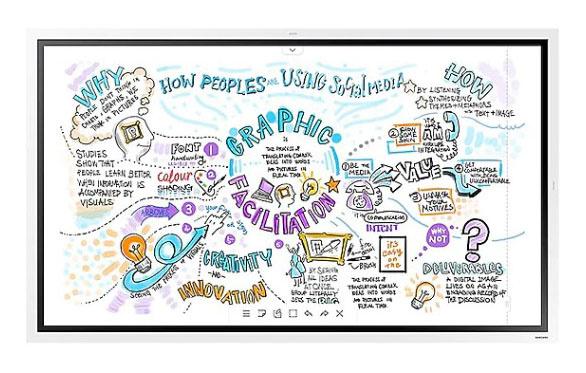 WHY
HOW PEOPLES ARE USING SOCIAL MEDIA
HOW
PEOPLE DON'T THINK IN
GRAPHS, WE
THINK IN PICTURES
BY LISTENING
SYNTHESIZING
THEMES + METAPHORS
TEXT + IMAGE
GRAPHIC
IS THE PROCESS OF
TRANSLATING COMPLEX
IDEAS INTO WORDS
AND PICTURES IN
REAL TIME
FACILITATION
STUDIES
SHOW THAT
PEOPLE LEARN BETTER
WHEN INFORMATION IS
ACCOMPANIED BY
VISUALS
FONT
handwriting
1
colour
2
SHADING
ARROWS
3
4
5
6
CREATIVITY
INNOVATION
BE THE
MEDIA
VALUE
I AM
3
UNMASK
YOUR
MOTIVES
4
GET
COMFORTABLE
BEING
UNCOMFORTABLE
INTENT
WHY
NOT
?
BY SEEING
ALL IDEAS
AT ONCE,
GROUP LITERALLY
SEES THE
THE PROCESS OF
TRANSLATING COMPLEX
IDEAS INTO WORDS
AND PICTURES IN
REAL TIME
it's
easy
on the
DELIVERABLES
A DIGITAL IMAGE
LIVES ON AS AN
RECORD OF
THE DISCUSSION
SAMSUNG